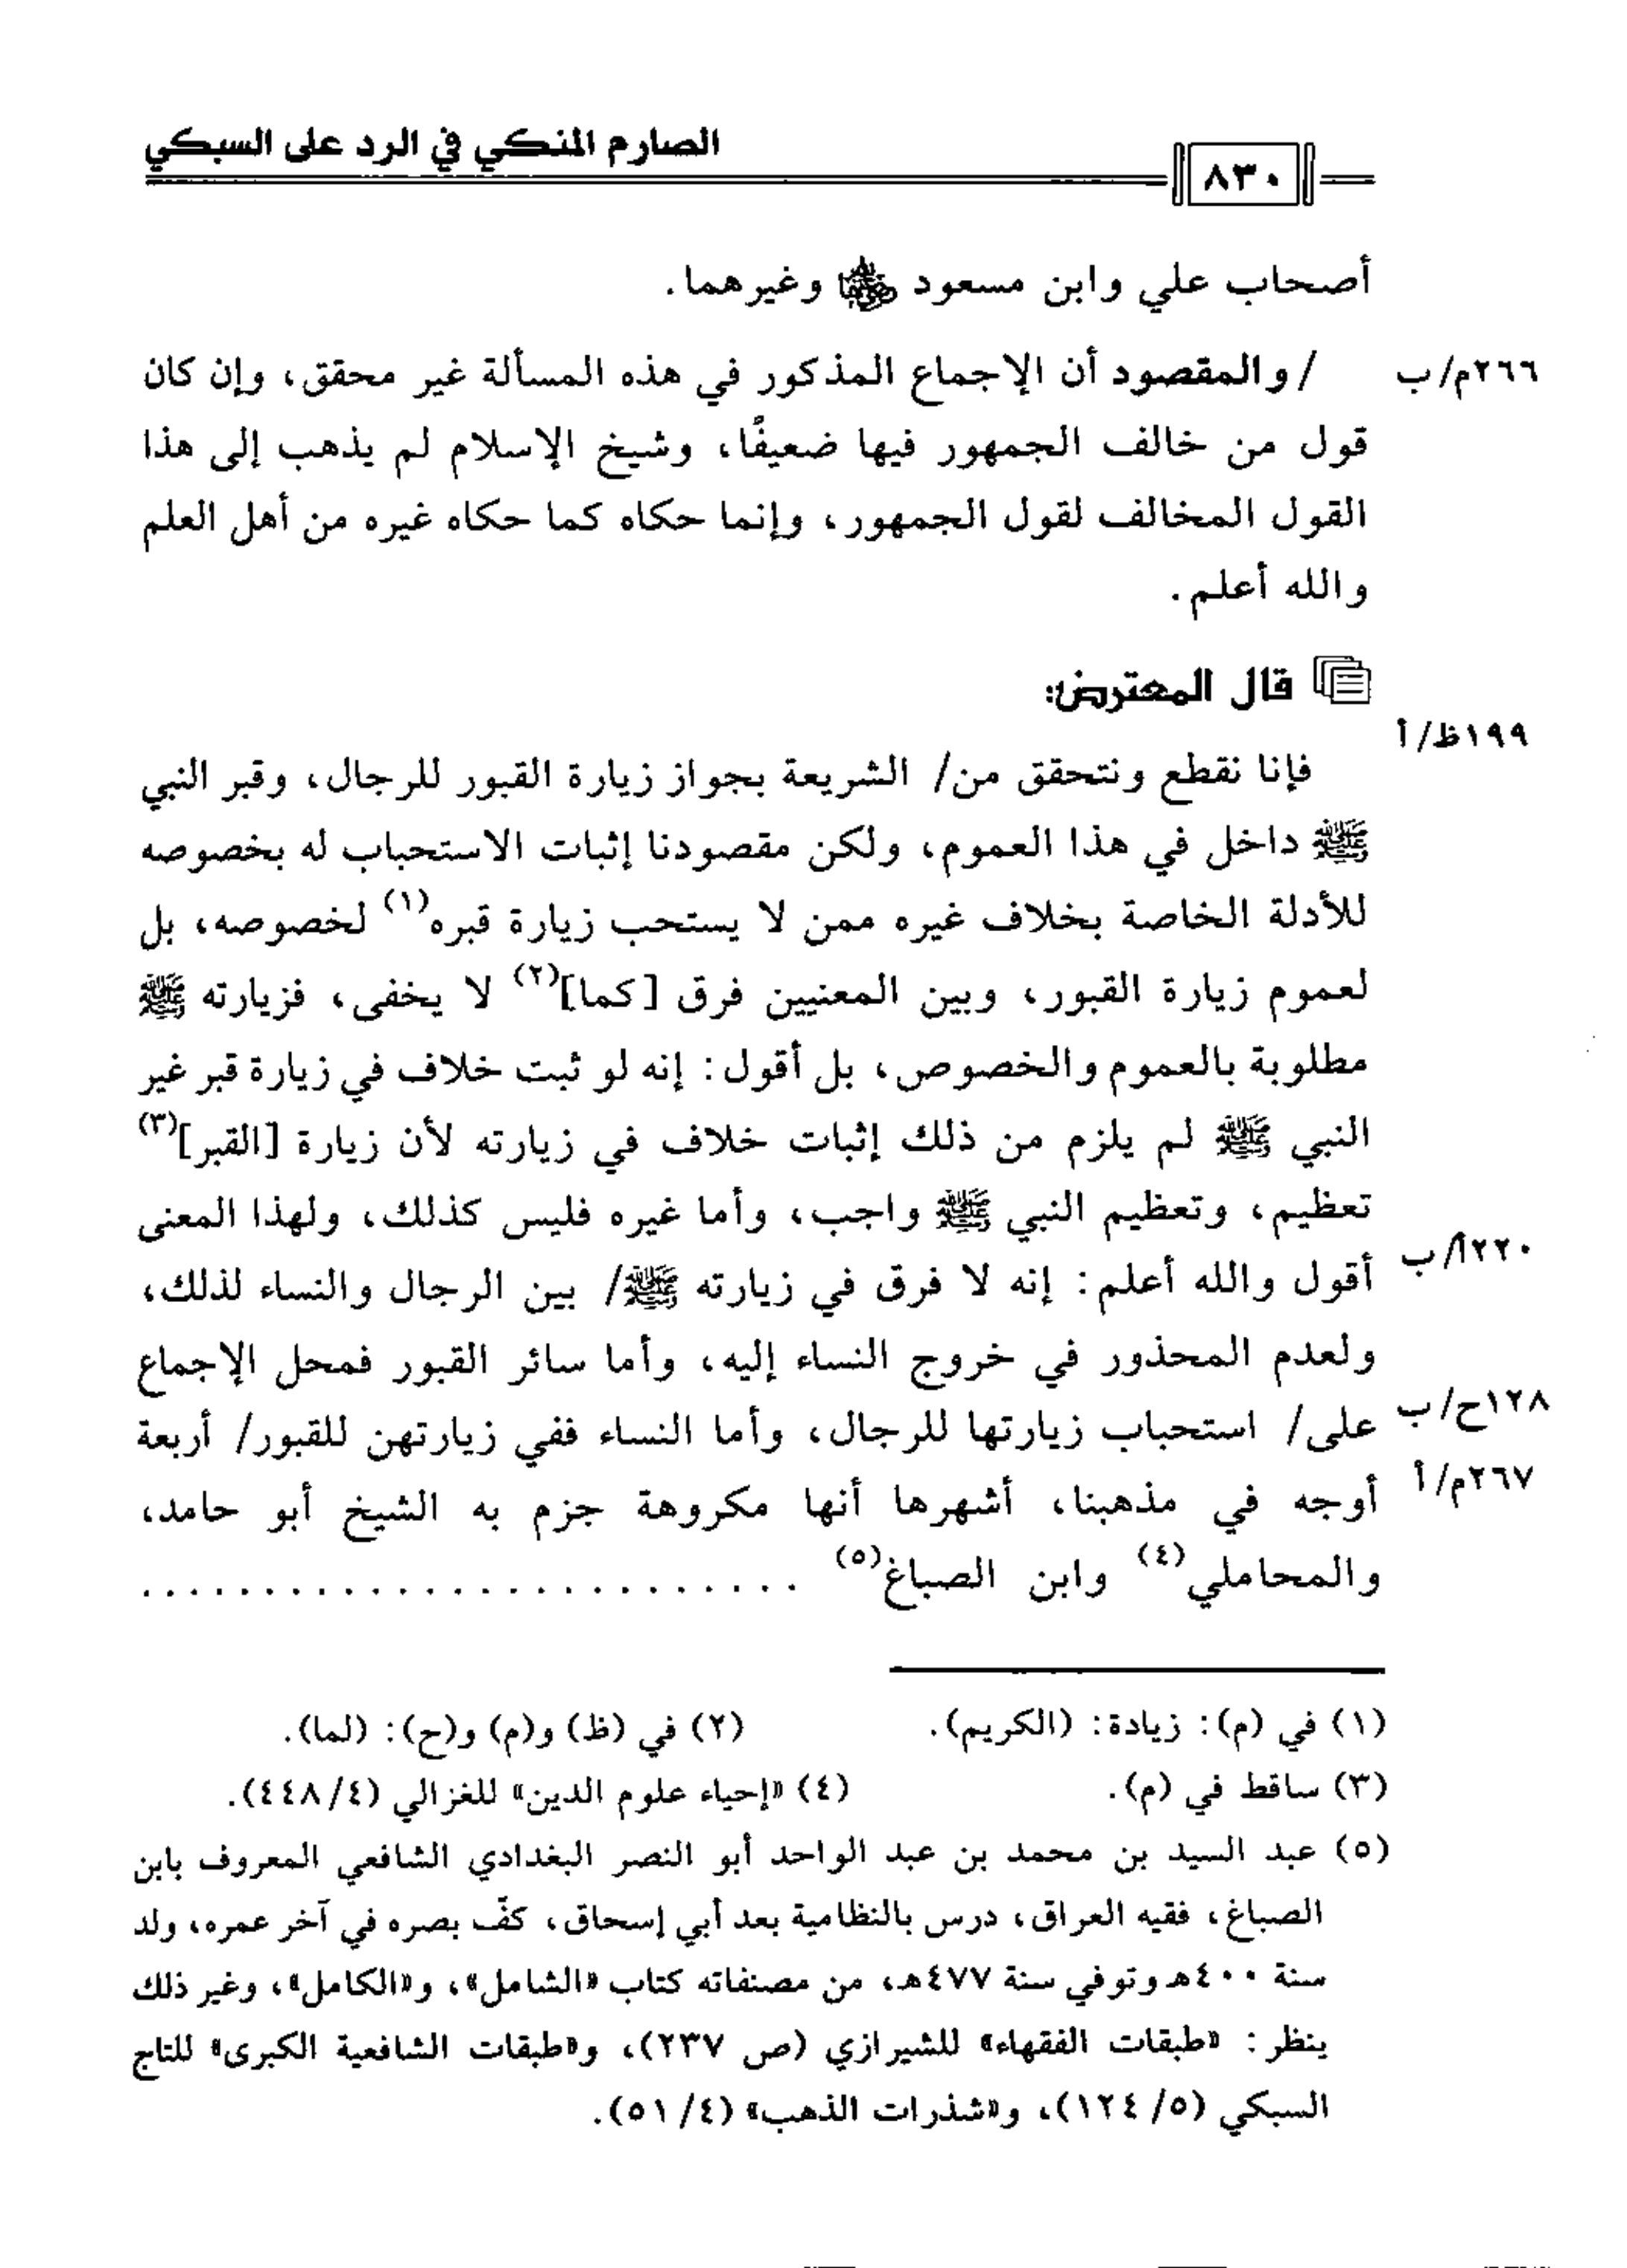 الصارم المنكي في الرد على السبكي
٨٣٠
أصحاب علي وابن مسعود ﵄ وغيرهما.
٢٦٦م/ب
/والمقصود أن الإجماع المذكور في هذه المسألة غير محقق، وإن كان
قول من خالف الجمهور فيها ضعيفًا، وشيخ الإسلام لم يذهب إلى هذا
القول المخالف لقول الجمهور، وإنما حكاه كما حكاه غيره من أهل العلم
والله أعلم.
قال المعترض:
١٩٩ظ/أ
فإنا نقطع ونتحقق من/ الشريعة بجواز زيارة القبور للرجال، وقبر النبي
ﷺ داخل في هذا العموم، ولكن مقصودنا إثبات الاستحباب له بخصوصه
للأدلة الخاصة بخلاف غيره ممن لا يستحب زيارة قبره(١) لخصوصه، بل
لعموم زيارة القبور، وبين المعنيين فرق [كما](٢) لا يخفى، فزيارته ﷺ
مطلوبة بالعموم والخصوص، بل أقول: إنه لو ثبت خلاف في زيارة قبر غير
النبي ﷺ لم يلزم من ذلك إثبات خلاف في زيارته لأن زيارة [القبر](٣)
تعظيم، وتعظيم النبي ﷺ واجب، وأما غيره فليس كذلك، ولهذا المعنى
٢٢٠أ/ب
أقول والله أعلم: إنه لا فرق في زيارته ﷺ/ بين الرجال والنساء لذلك،
ولعدم المحذور في خروج النساء إليه، وأما سائر القبور فمحل الإجماع
١٢٨ح/ب
على/ استحباب زيارتها للرجال، وأما النساء ففي زيارتهن للقبور/ أربعة
٢٦٧م/أ
أوجه في مذهبنا، أشهرها أنها مكروهة جزم به الشيخ أبو حامد،
والمحاملي(٤) وابن الصباغ(٥) . . . . . . . . . . . . . . . . . . . . . . . . .
(١) في (م): زيادة: (الكريم). (٢) في (ظ) و(م) و(ح): (لما).
(٣) ساقط في (م). (٤) «إحياء علوم الدين» للغزالي (٤/٤٤٨).
(٥) عبد السيد بن محمد بن عبد الواحد أبو النصر البغدادي الشافعي المعروف بابن
الصباغ، فقيه العراق، درس بالنظامية بعد أبي إسحاق، كفّ بصره في آخر عمره، ولد
سنة ٤٠٠هـ وتوفي سنة ٤٧٧هـ، من مصنفاته كتاب «الشامل»، و«الكامل»، وغير ذلك
ينظر: «طبقات الفقهاء» للشيرازي (ص ٢٣٧)، و«طبقات الشافعية الكبرى» للتاج
السبكي (٥/ ١٢٤)، و«شذرات الذهب» (٤/ ٥١).